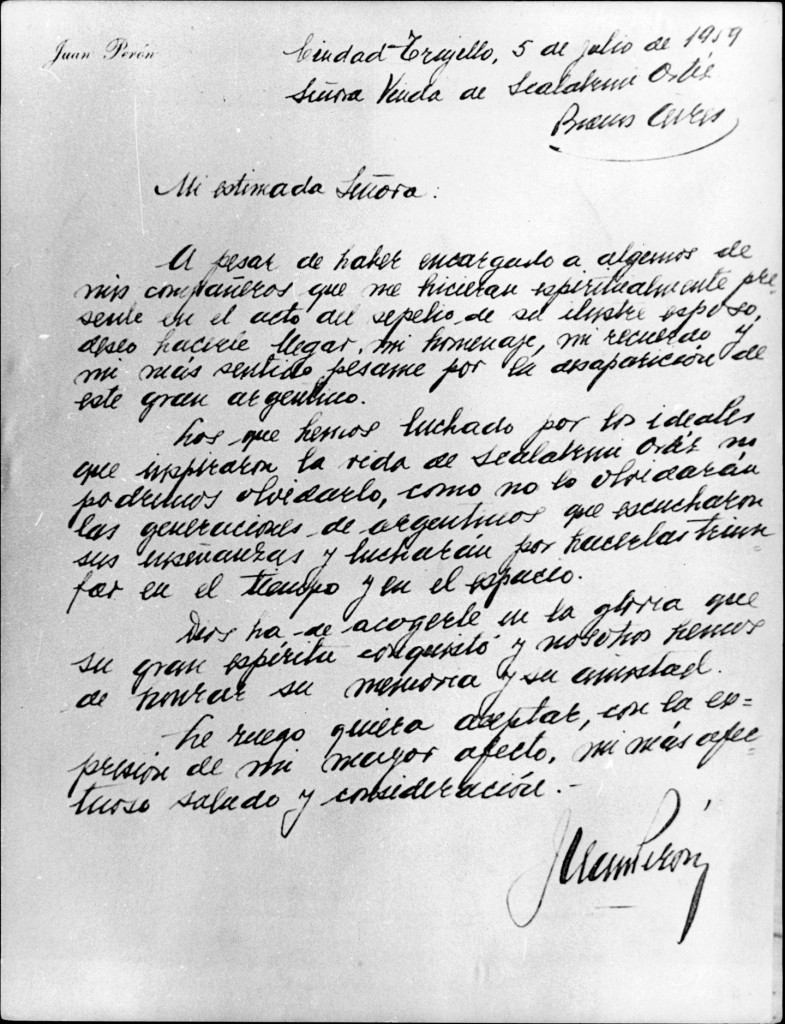 Juan Perón
Ciudad Trujillo, 5 de julio de 1959
Señora Viuda de Scalabrini Ortíz
Buenos Aires
Mi estimada Señora:
A pesar de haber encargado a algunos de
mis compañeros que me hicieran espiritualmente pre-
sente en el acto del sepelio de su ilustre esposo,
deseo hacerle llegar mi homenaje, mi recuerdo y
mi más sentido pésame por la desaparición de
este gran argentino.
Los que hemos luchado por los ideales
que inspiraron la vida de Scalabrini Ortíz no
podremos olvidarlo, como no lo olvidarán
las generaciones de argentinos que escucharon
sus enseñanzas y lucharán por hacerlas triun=
far en el tiempo y en el espacio.
Dios ha de acogerle en la gloria que
su gran espíritu conquistó y nosotros hemos
de honrar su memoria y su amistad.
Le ruego quiera aceptar, con la ex=
presión de mi mayor afecto, mi más afec=
tuoso saludo y consideración.-
Juan Perón